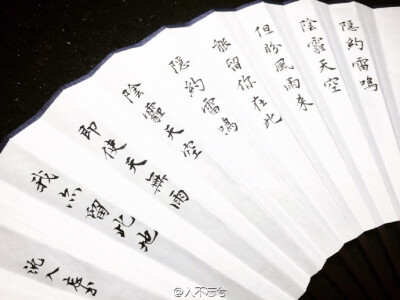 隱約雷鳴
陰霾天空
但盼風雨來
能留你在此
隱約雷鳴
陰霾天空
即使天無雨
我亦留此地